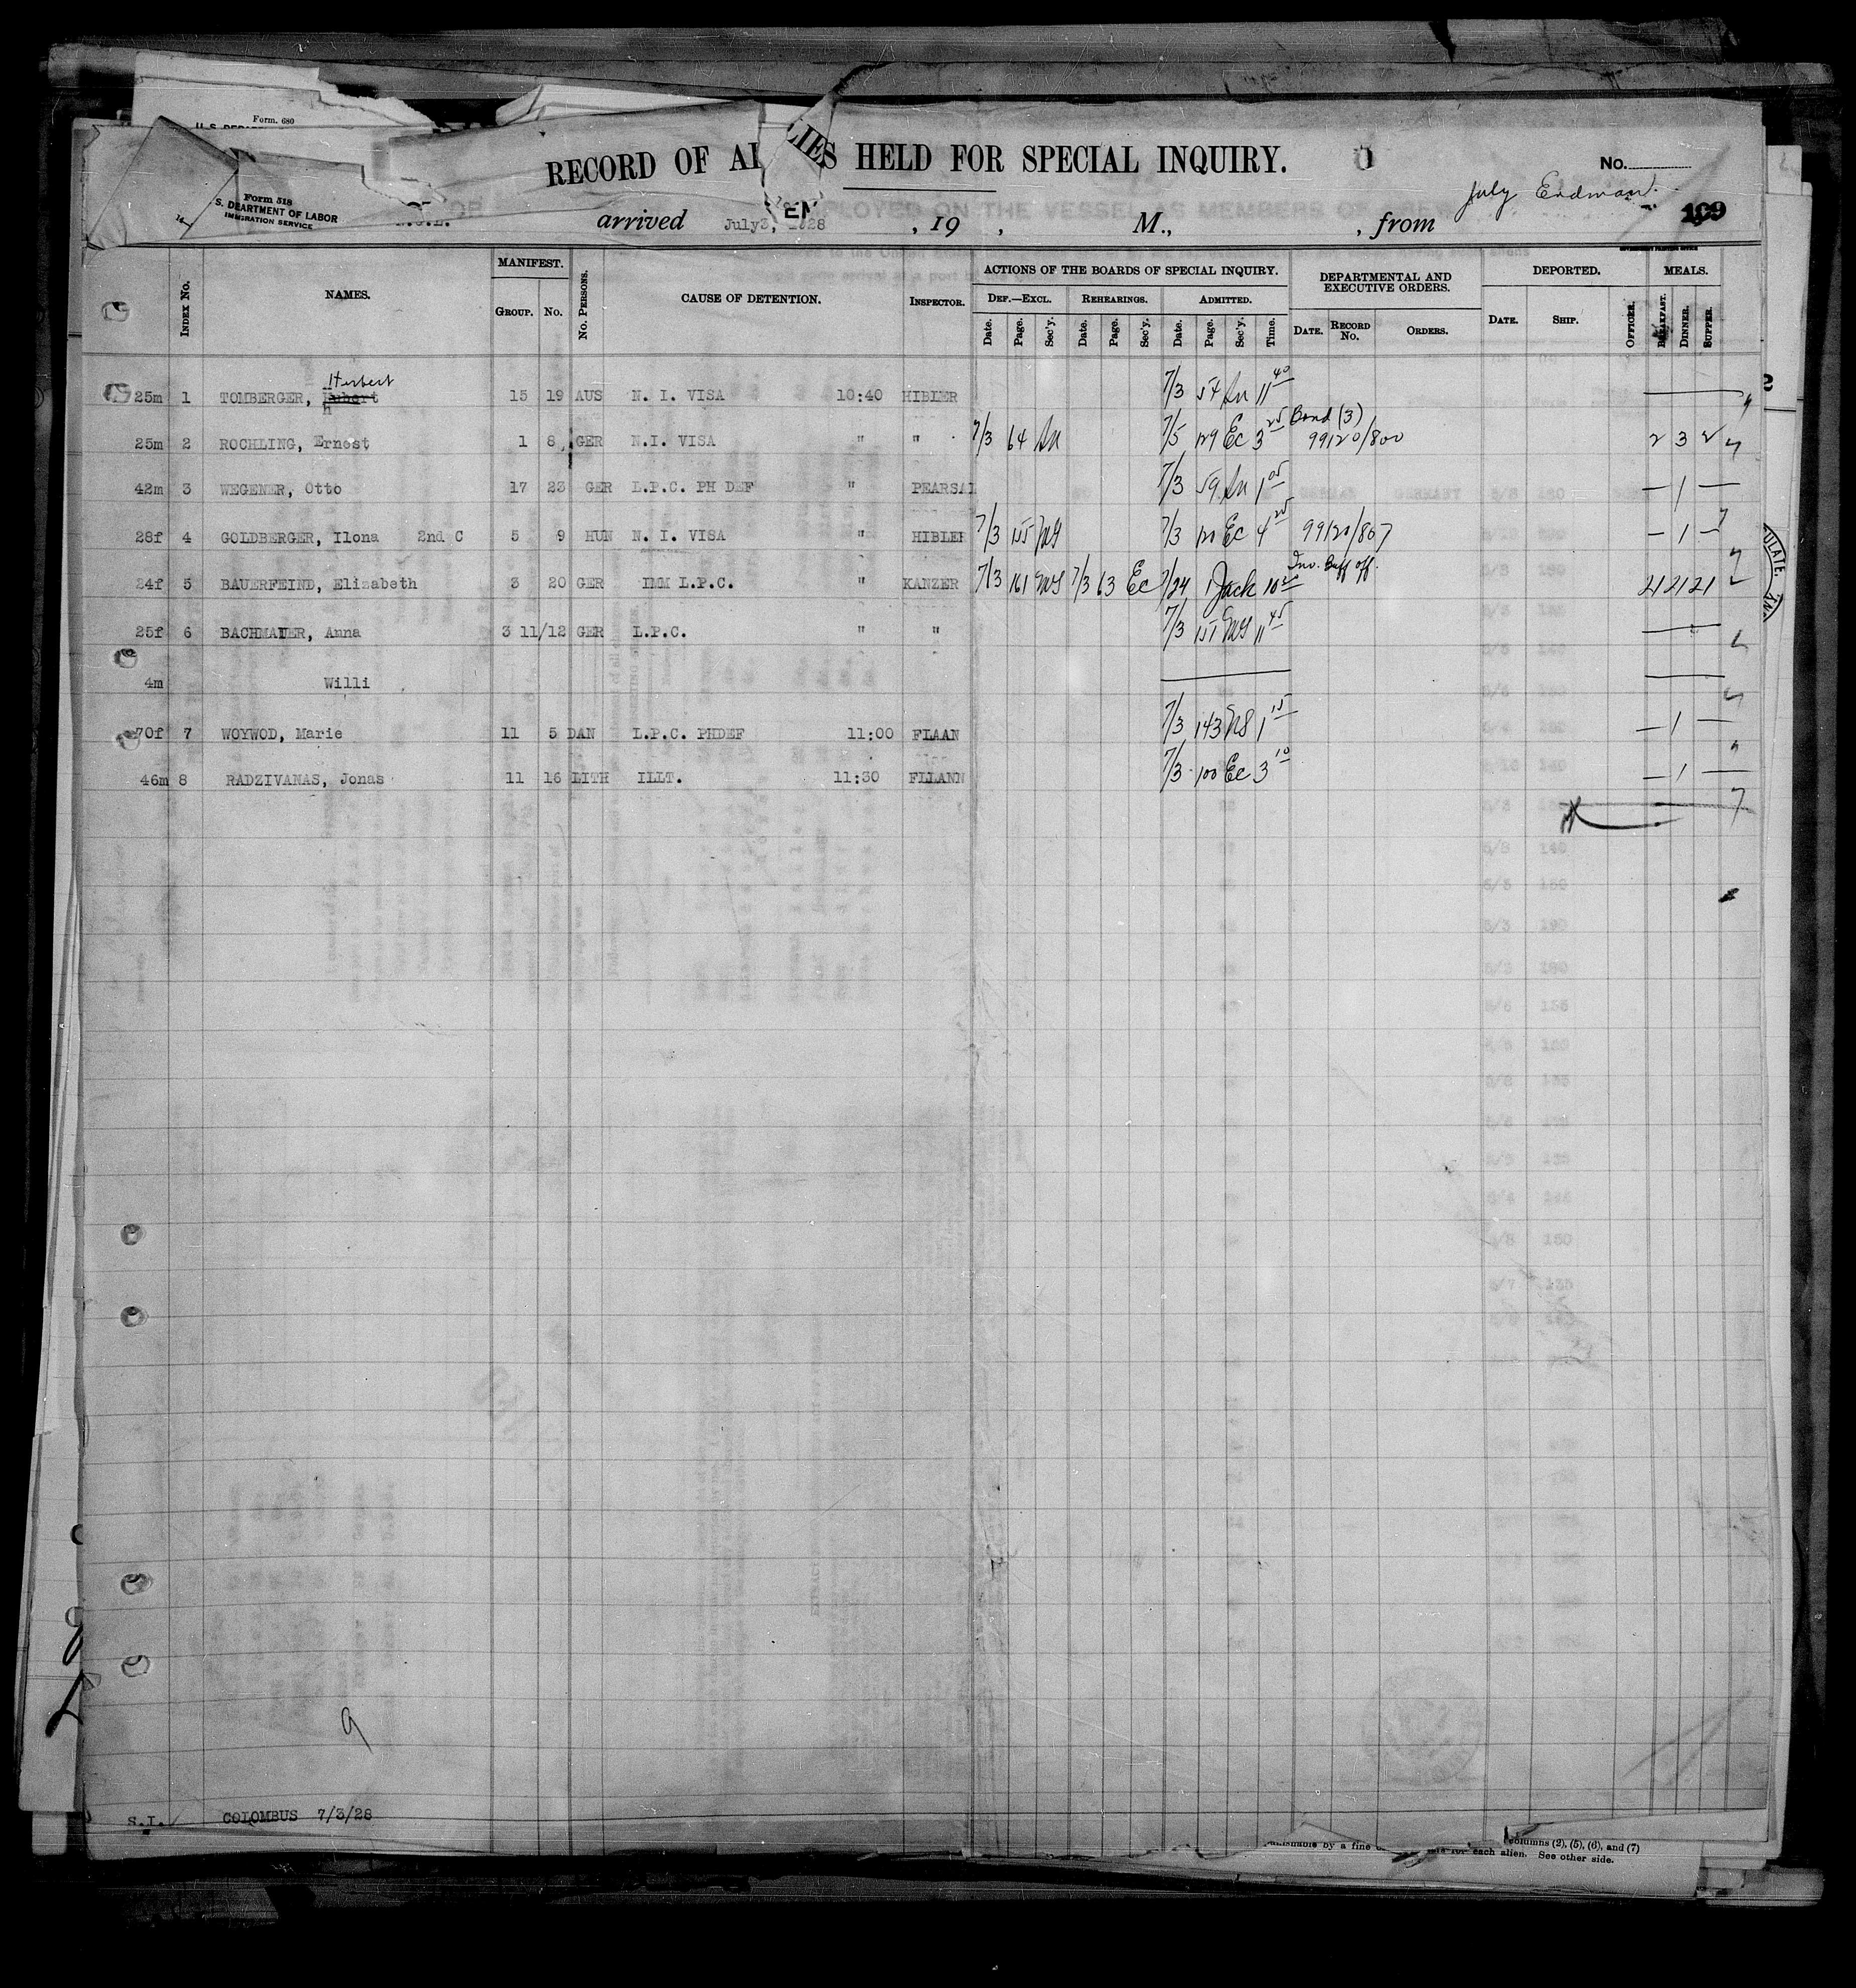 Form. 680
RECORD OF AL LIES HELD FOR SPECIAL INQUIRY.
No.
Form 518
S. DEARTMENT OF LABOR
IMMIGRATION SERVICE
14
arrived July3, 1928 , 19 , M., , from
July Erdman
109
Index No. NAMES. MANIFEST. No. Persons. CAUSE OF DETENTION. Inspector. ACTIONS OF THE BOARDS OF SPECIAL INQUIRY. DEPARTMENTAL AND EXECUTIVE ORDERS. DEPORTED. MEALS.
Group. No. Def.—Excl. Rehearings. Admitted. Date. Record No. Orders. Date. Ship. Officer. Breakfast. Dinner. Supper.
Date. Page. Sec'y. Date. Page. Sec'y. Date. Page. Sec'y. Time.
Herbert
25m 1 TOMBERGER, Hubert 15 19 AUS N. I. VISA 10:40 HIBLER 7/3 54 11 40
Bond (3)
25m 2 ROCHLING, Ernest 1 8 GER N.I. VISA " " 7/3 64 7/5 129 Ec 3 25 99120/800 2 3 2
42m 3 WEGENER, Otto 17 23 GER L.P.C. PH DEF " PEARSAL 7/3 59 1 05 — 1 —
28f 4 GOLDBERGER, Ilona 2nd C 5 9 HUN N. I. VISA " HIBLER 7/3 155 7/3 120 Ec 4 25 99120/807 — 1 —
24f 5 BAUERFEIND, Elizabeth 3 20 GER IMM L.P.C. " KANZER 7/3 161 7/3 63 Ec 7/24 Jack 10 21 21 21
25f 6 BACHMAUER, Anna 3 11/12 GER L.P.C. " " 7/3 151 11 45
4m Willi
70f 7 WOYWOD, Marie 11 5 DAN L.P.C. PHDEF 11:00 FLAAN 7/3 143 1 15 — 1 —
46m 8 RADZIVANAS, Jonas 11 16 LITH ILLT. 11:30 FLLANN 7/3 100 Ec 3 10 — 1 —
9
S.I. COLOMBUS 7/3/28
punishable by a fine columns (2), (5), (6), and (7)
for each alien. See other side.